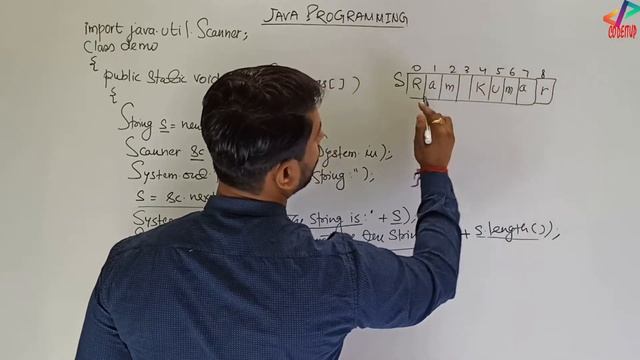 JAVA PROGRAMMING
CODEITUP
import java.util.Scanner;
Class demo
{
public static void s[] )
{
String s = new
Scanner sc System.in);
System.out String:");
s = sc.next
System String is:" + S);
the String + s.length());
0 1 2 3 4 5 6 7 8
S R a m K u m a r
}